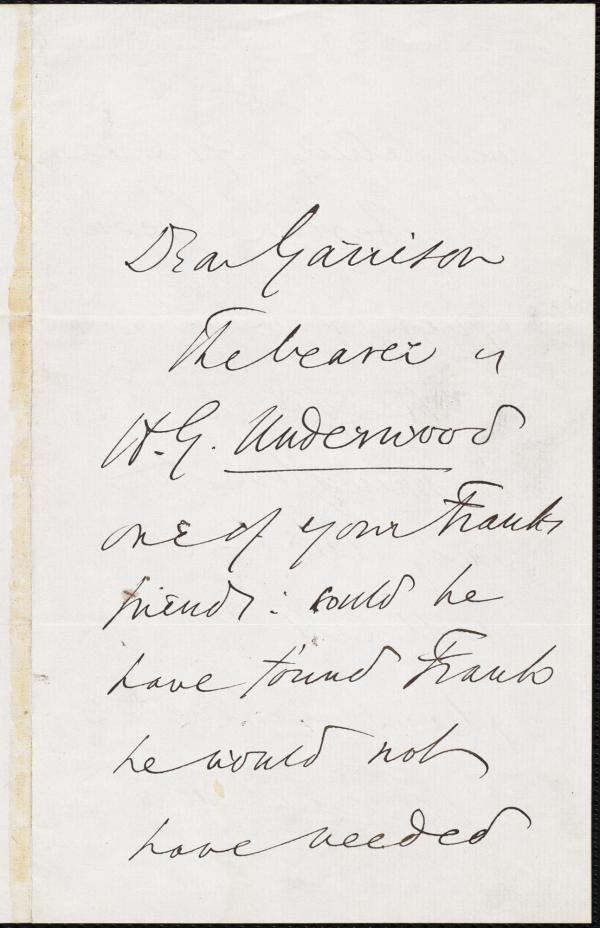 Dear Garrison
The bearer is
H. G. Underwood
one of your Franks
friends: could he
have found Frank
he would not
have needed